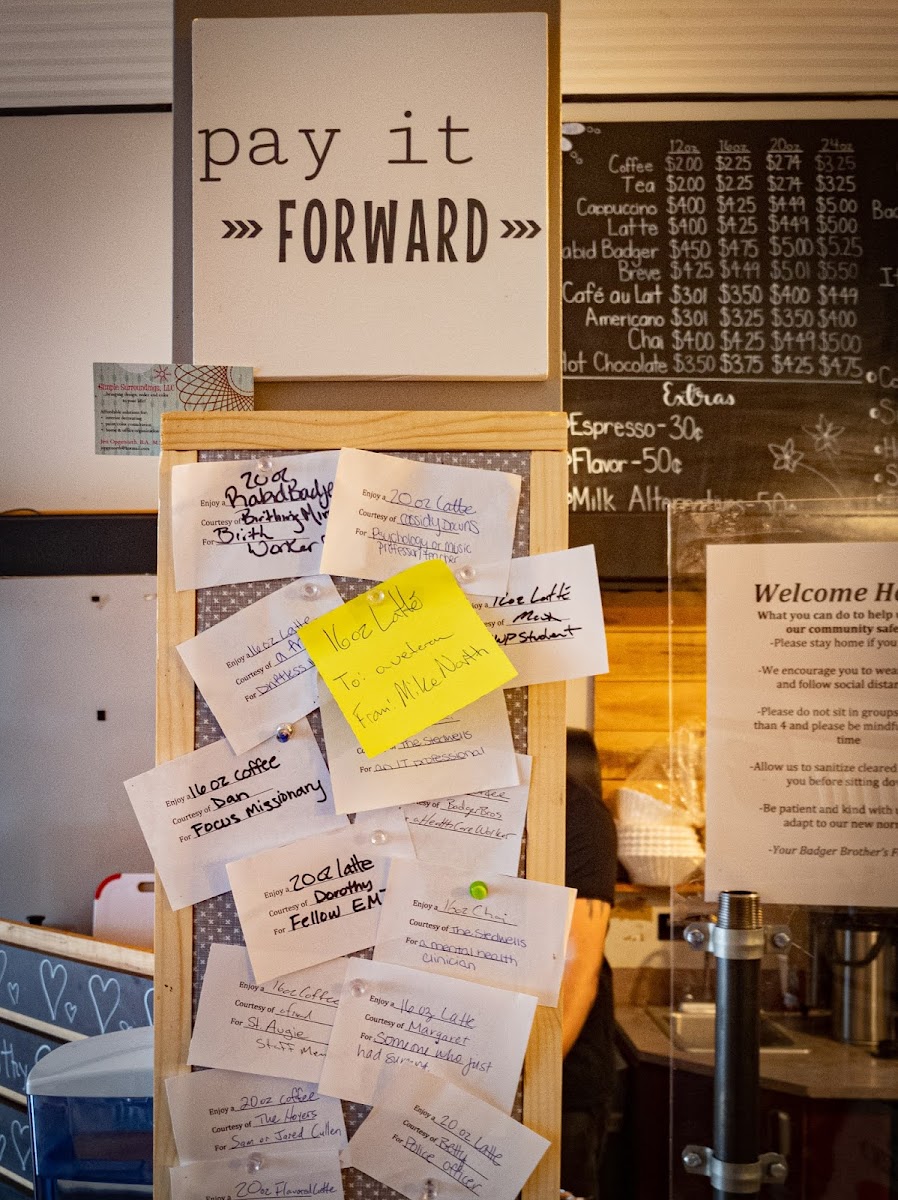 pay it
»» FORWARD »»
Simple Surroundings, LLC
12oz 16oz 20oz 24oz
Coffee $2.00 $2.25 $2.74 $3.25
Tea $2.00 $2.25 $2.74 $3.25
Cappuccino $4.00 $4.25 $4.49 $5.00
Latte $4.00 $4.25 $4.49 $5.00
abid Badger $4.50 $4.75 $5.00 $5.25
Breve $4.25 $4.49 $5.01 $5.50
Café au Lait $3.01 $3.50 $4.00 $4.49
Americano $3.01 $3.25 $3.50 $4.00
Chai $4.00 $4.25 $4.49 $5.00
Hot Chocolate $3.50 $3.75 $4.25 $4.75
Extras
Espresso - 30¢
Flavor - 50¢
Milk Alternatives - 50
20oz
Enjoy a Rabid Badge
Courtesy of Birthing
For Birth
Worker
Enjoy a 20 oz Latte
Courtesy of Cassidy Downs
For Psychology or music
professor/teacher
Enjoy a 16oz Latte
Courtesy of a
For Driftless
16oz Latté
To: a veteran
From: Mike North
oy a 16oz Latté
sy of
WP Student
The Stedwells
For an IT professional
Enjoy a 16 oz coffee
Courtesy of Dan
For Focus Missionary
sy of Badger Bros
a Health Care Worker
Enjoy a 20oz latte
Courtesy of Dorothy
For Fellow EMT
Enjoy a 16oz Chai
Courtesy of The Stedwells
For a mental health
clinician
Enjoy a 16oz Coffee
Courtesy of
For St. Augie
Staff Me
Enjoy a 16 oz Latte
Courtesy of Margaret
For Someone who just
had
Enjoy a 20oz coffee
Courtesy of The Hoyers
For Sam or Jared Cullen
Enjoy a 20oz Latte
Courtesy of Betty
For Police officer
20oz Flavored Latte
Welcome Ho
What you can do to help
our community safe
-Please stay home if you
-We encourage you to wea
and follow social distan
-Please do not sit in groups
than 4 and please be mindfu
time
-Allow us to sanitize cleared
you before sitting dow
-Be patient and kind with
adapt to our new nor
-Your Badger Brother's F